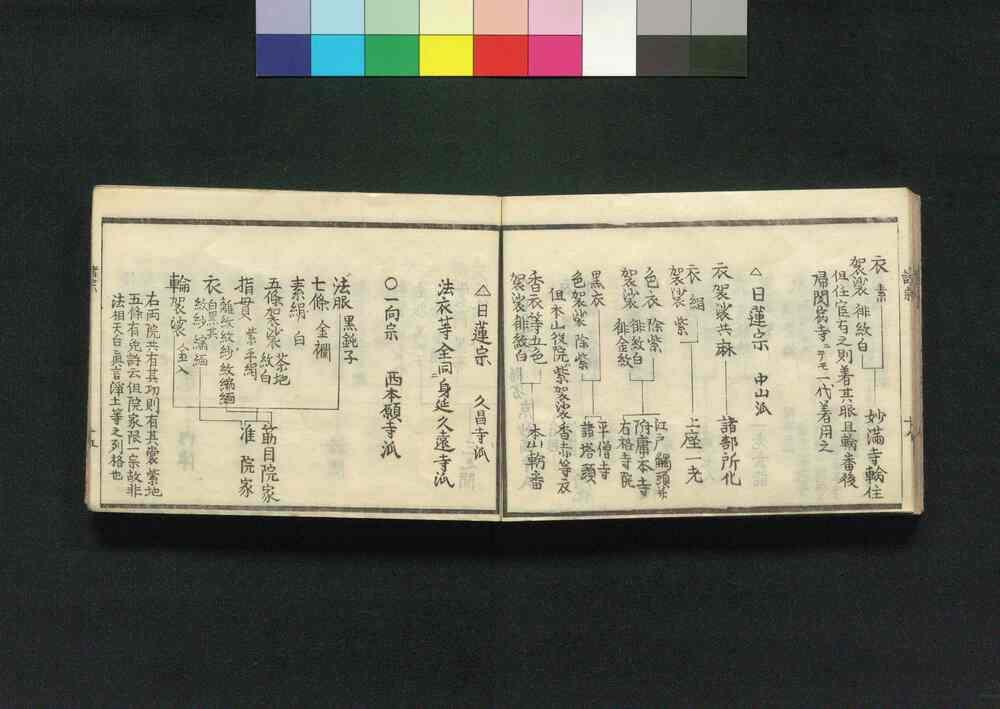 衣 素
袈裟 緋紋白
妙満寺輪住
但住官有之則着其服且輪番後
帰関寺ニテモ一代着用之
△日蓮宗 中山派
衣袈裟共麻
諸部所化
衣 絹
袈裟 紫
上座一老
色衣 除紫
袈裟 緋紋白
緋金紋
江戸觸頭
附庸本寺
右格寺院
黒衣
色袈裟 除紫
平僧寺
諸塔頭
但本山役院紫袈裟香赤等衣
香衣等五色
袈裟緋紋白
本山輪番
△日蓮宗 久昌寺派
法衣等全同ニ身延久遠寺派
〇一向宗 西本願寺派
法服 黒鈍子
七條 金襴
素絹 白
五條袈裟 紋白 茶地
指貫 紫平絹
筋目院家
准院家
衣 白黒共
紋紗 縮緬
輪袈裟 金入
右両院共有其功則有其裳紫地
五條有免許云但院家限一宗故非
法相天台真言浄土等之列格也